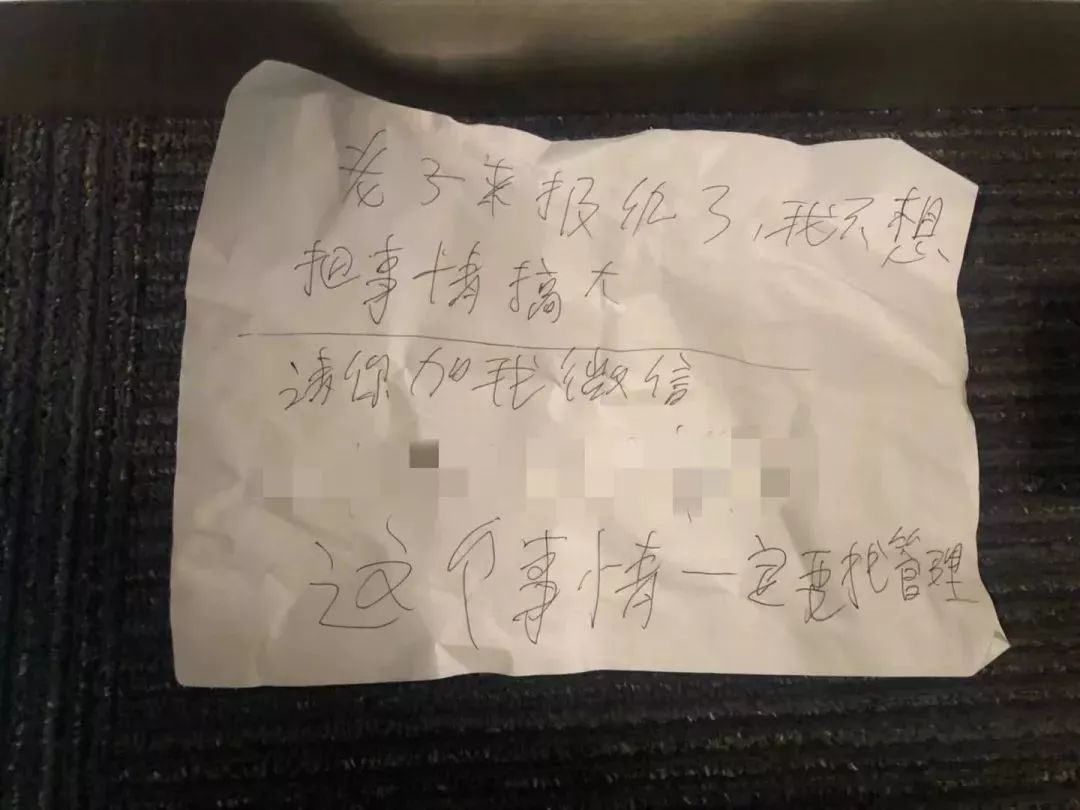 老子来报仇了,我不想
把事情搞大
请你加我微信
这个事情一定要找管理